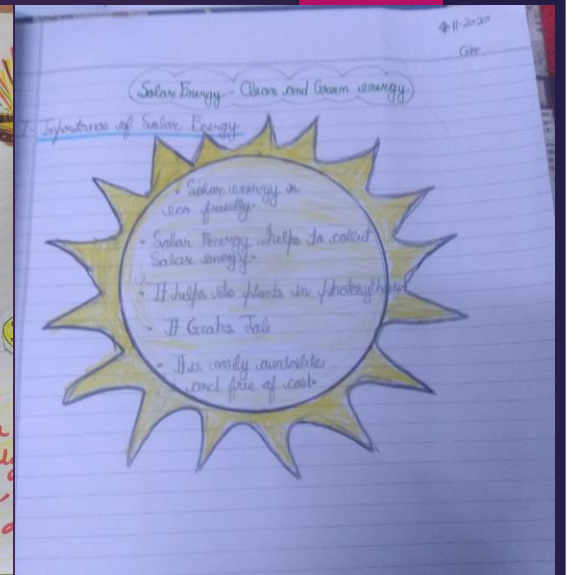 4-11-2020
GW
Solar Energy - Clean and Green energy
1- Importance of Solar Energy
• Solar energy is
eco friendly.
• Solar Energy helps to collect
Solar energy.
• It helps to plants in
• It Creates Job
• It is easily available
and free of cost.